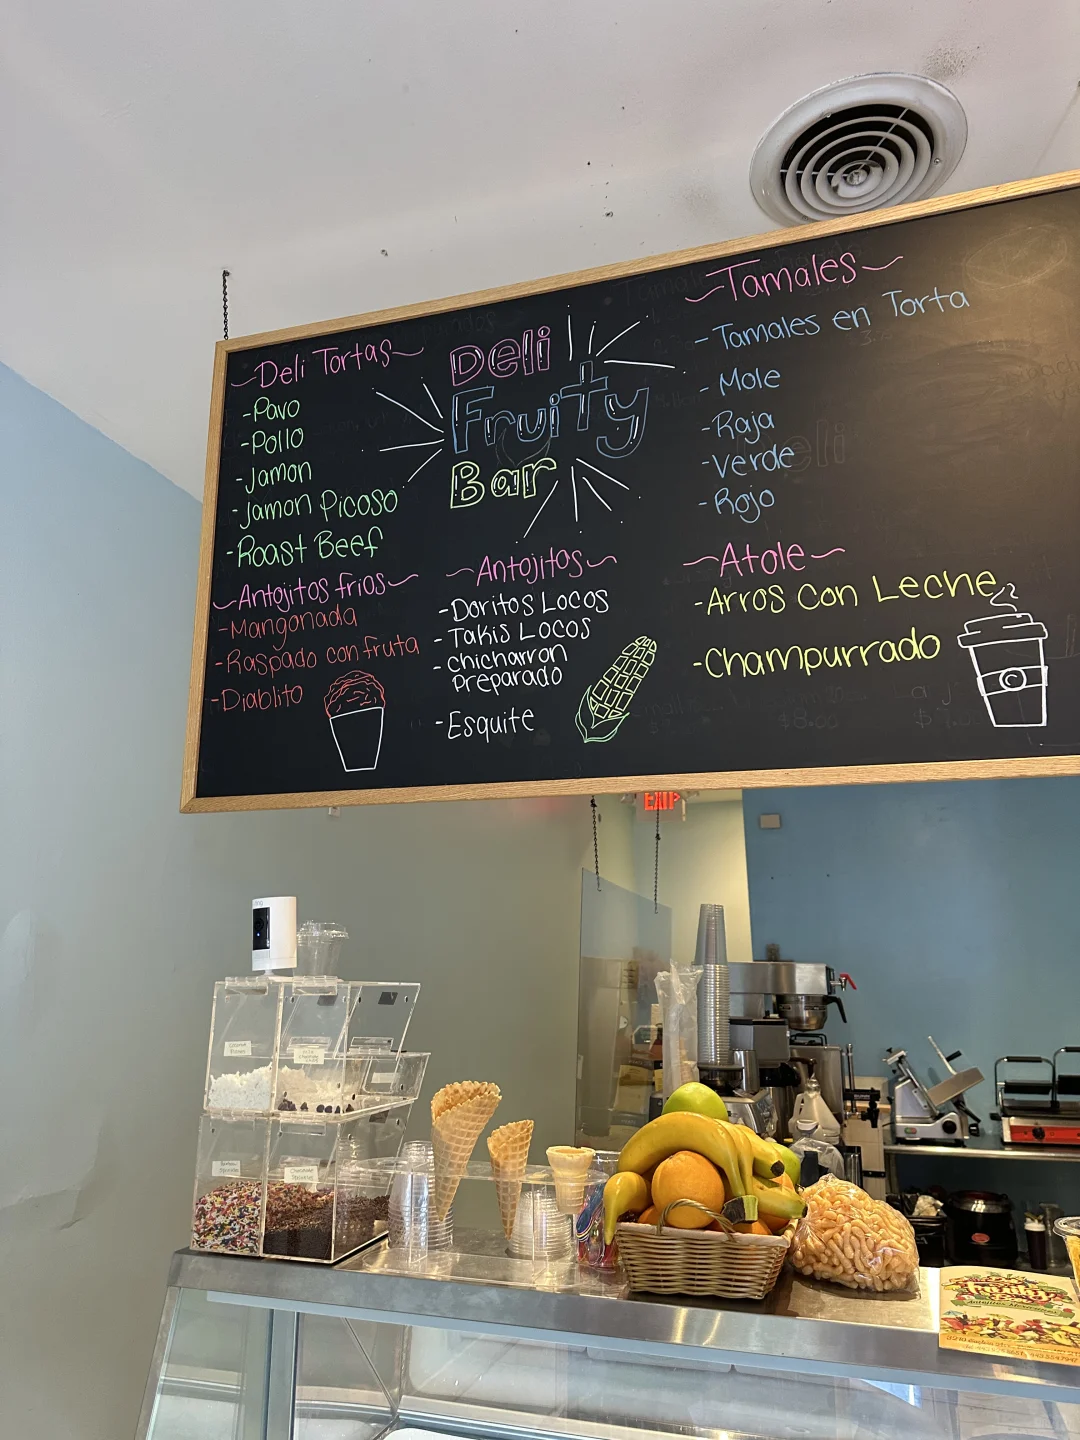 ~Deli Tortas~
-Pavo
-Pollo
-Jamon
-Jamon Picoso
-Roast Beef
~Antojitos frios~
-Mangonada
-Raspado con fruta
-Diablito
Deli
Fruity
Bar
~Antojitos~
-Doritos Locos
-Takis Locos
-chicharron
preparado
-Esquite
~Tamales~
-Tamales en Torta
-Mole
-Raja
-Verde
-Rojo
~Atole~
-Arros Con Leche
-Champurrado
EXIT
ring